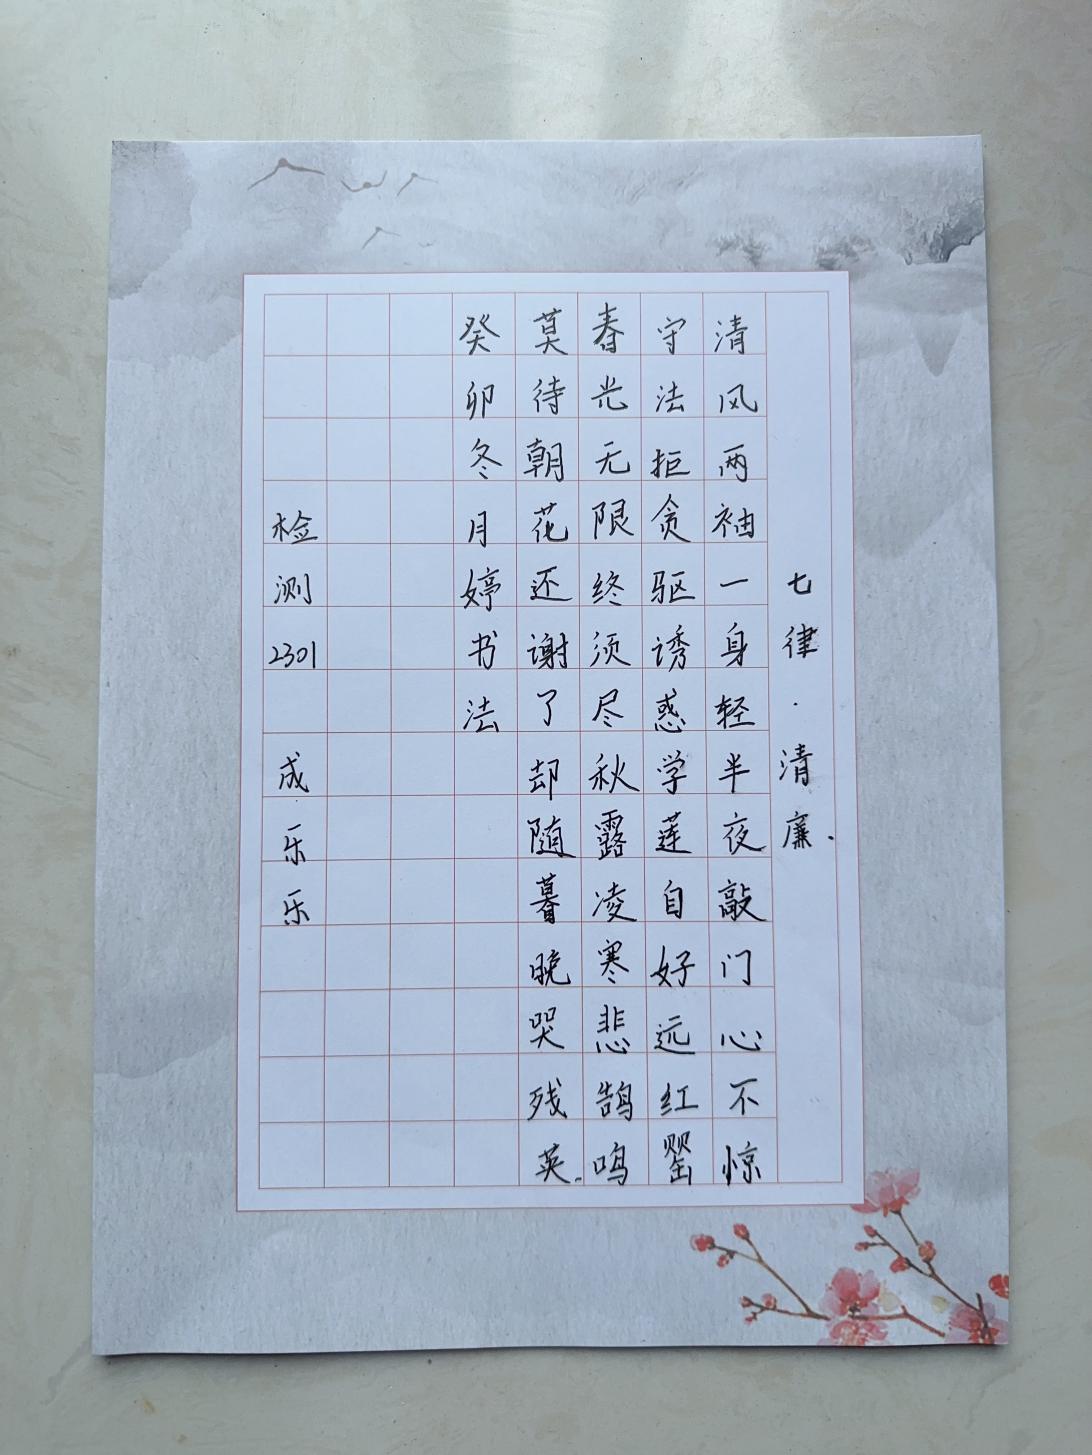 七律·清廉.
清风两袖一身轻半夜敲门心不惊
守法拒贪驱诱惑学莲自好远红罂
春光无限终须尽秋露凌寒悲鹄鸣
莫待朝花还谢了却随暮晚哭残英.
癸卯冬月婷书法
检测2301 成乐乐